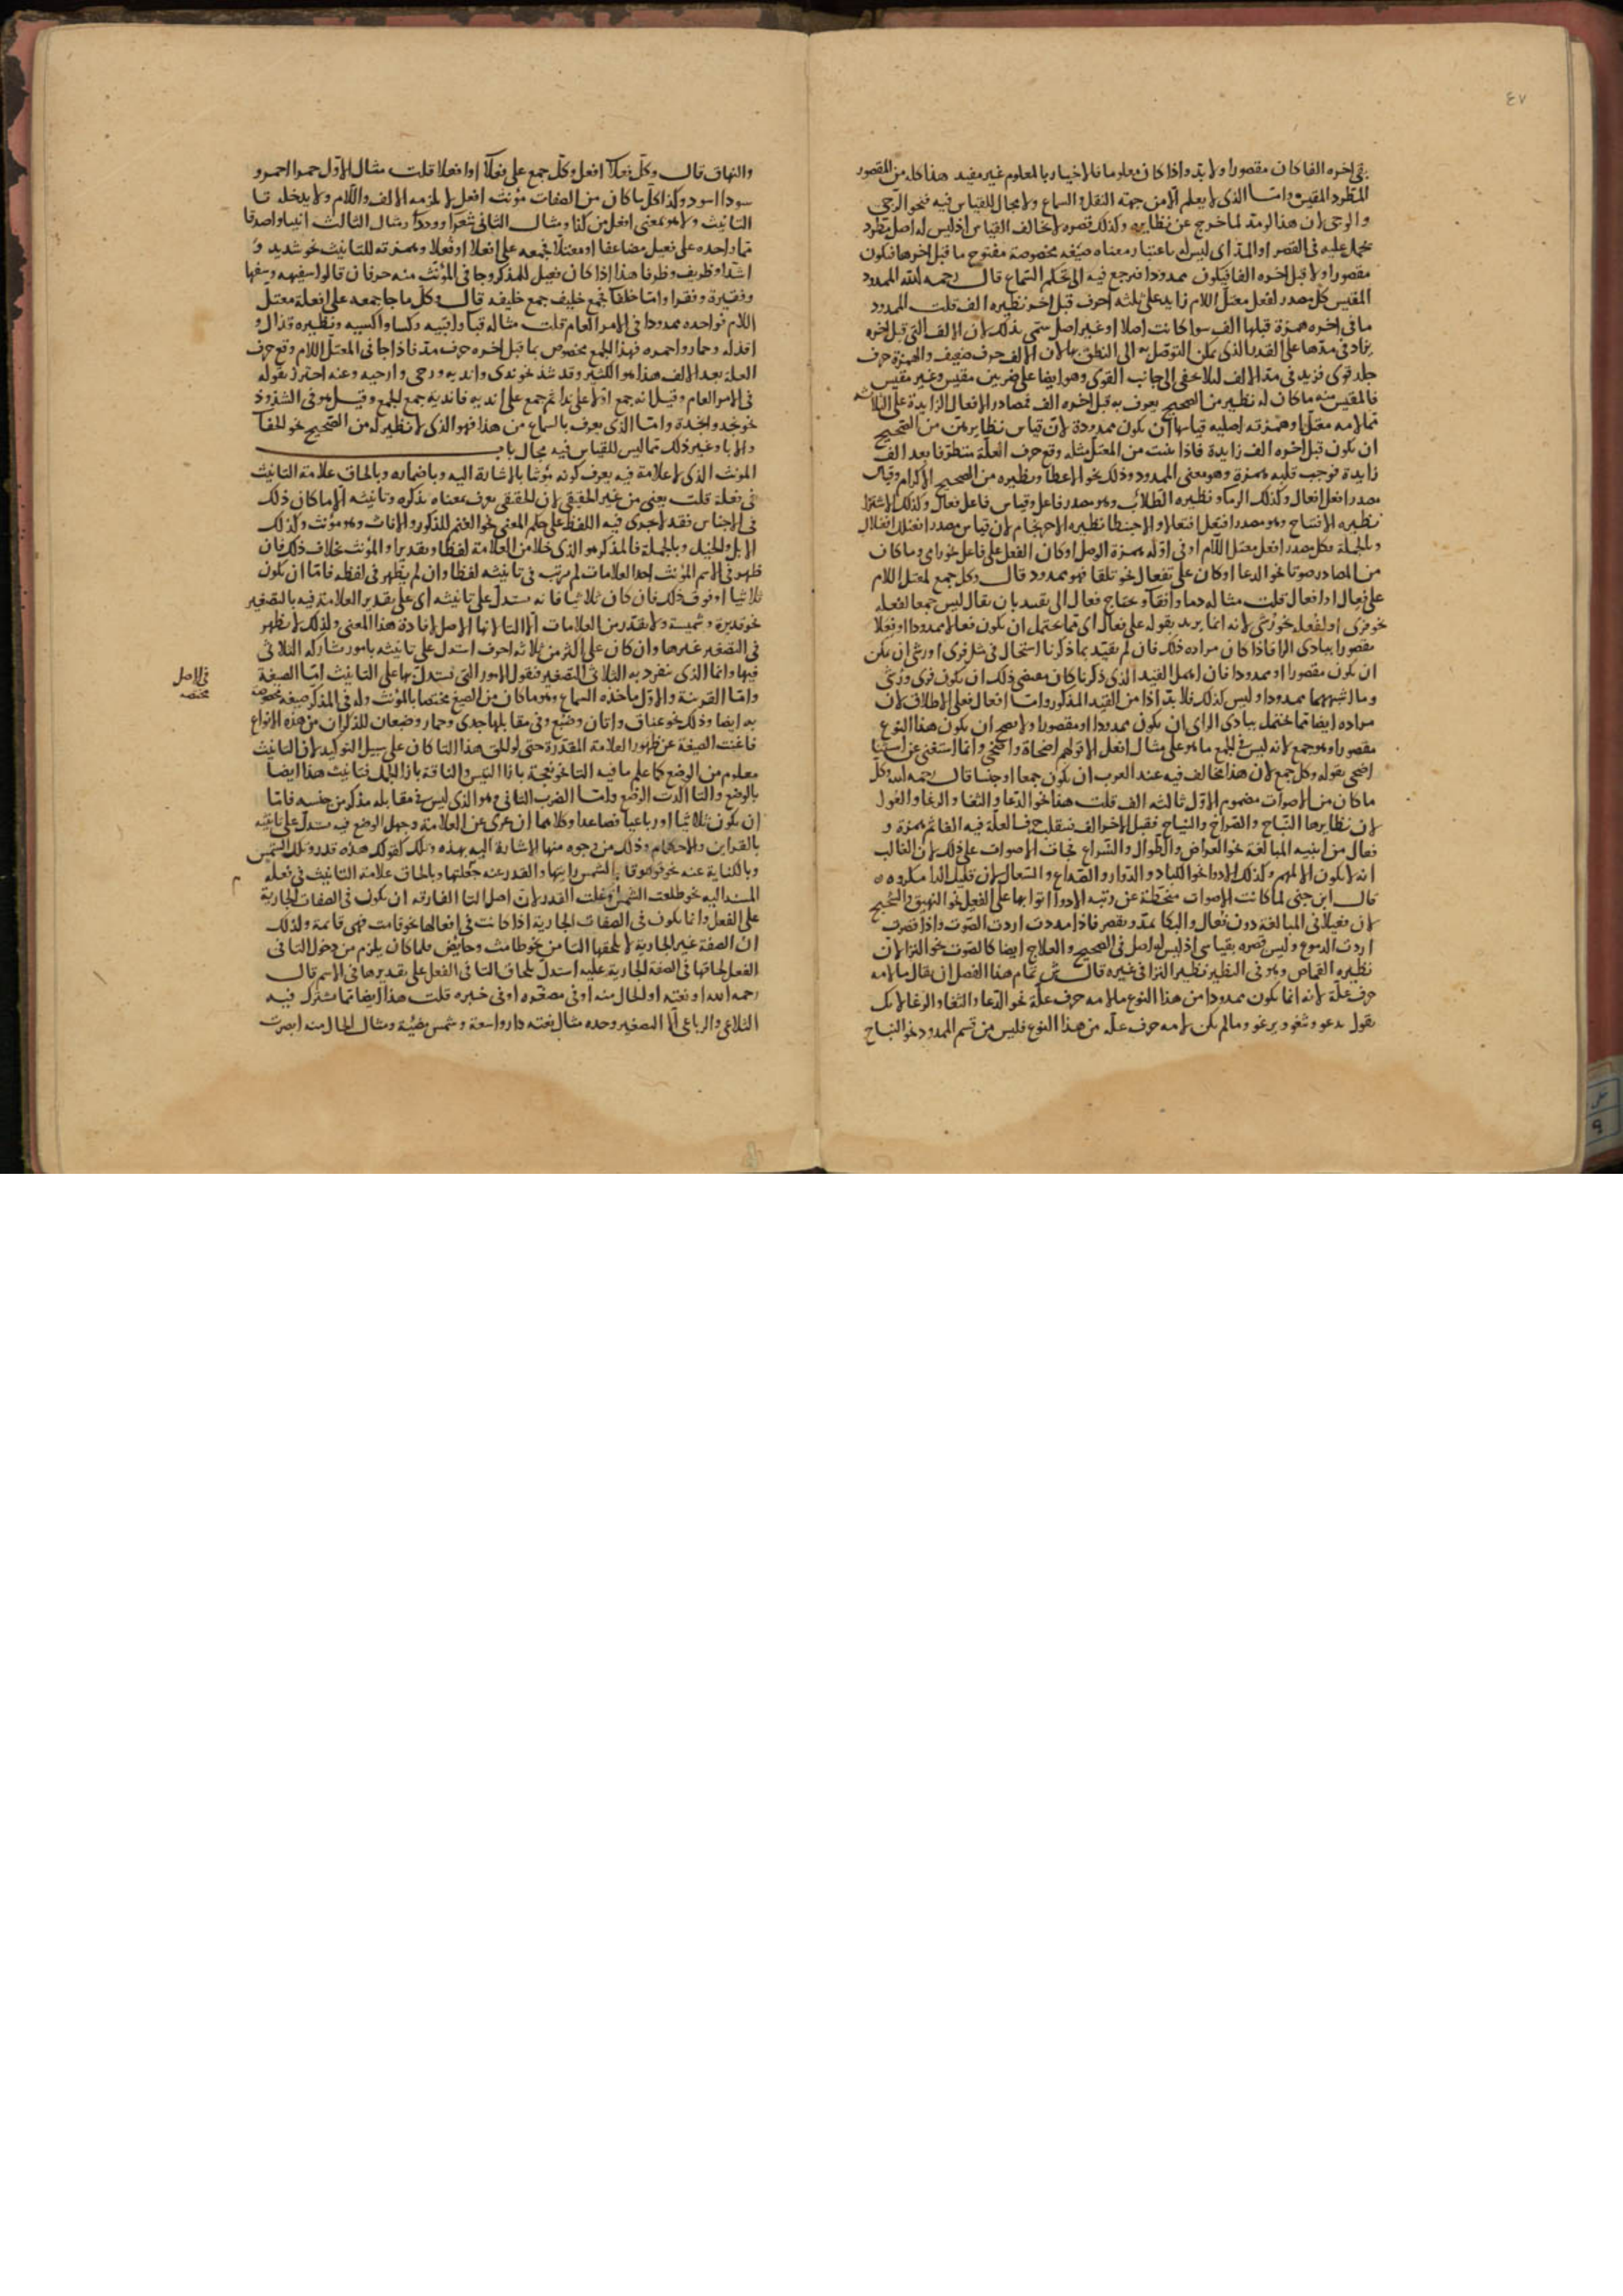 ٤٧
اخره الفا كان مقصورا ولا بد واذا كان معلوما فالاخبار بالمعلوم غير مفيد هذا كله من المقصور
المطرد المقيس واما الذى لا يعلم الا من جهة النقل والسماع ولا مجال للقياس فيه فنحو الرحى
والوحى لان هذا لو مد لما خرج عن نظايره وكذلك قصره لا يخالف القياس اذ ليس له اصل مطرد
يحمل عليه فى القصر او المد اى ليس له باعتبار معناه صيغه مخصوصة مفتوح ما قبل اخرها فيكون
مقصورا ولا قبل اخره الفا فيكون ممدودا فيرجع فيه الى حكم السماع قال رحمه الله الممدود
المقيس كل مصدر لفعل معتل اللام زايد على ثلثه احرف قبل اخر نظيره الف قلت الممدود
ما فى اخره همزة قبلها الف سوا كانت اصلا او غير اصل سمى بذلك لان الالف التى قبل اخره
يزاد فى مدها على القدر الذى يمكن التوصل به الى النطق بها لان الالف حرف ضعيف والهمزة حرف
جلد قوى فزيد فى مد الالف ليلا تخفى الى جانب القوى وهو ايضا على ضربين مقيس وغير مقيس
فالمقيس منه ما كان له نظير من الصحيح يعرف به قبل اخره الف فمصادر الافعال الزايدة على الثلاثه
مما لامه معتل او همزته اصليه قياسها ان يكون ممدودة لان قياس نظايرهن من الصحيح
ان يكون قبل اخره الف زايدة فاذا بنيت من المعتل مثله وقع حرف العلة متطرفا بعد الف
زايدة فوجب قلبه همزة وهو معنى الممدود وذلك نحو الاعطا ونظيره من الصحيح الاكرام وقياس
مصدر افعل افعال وكذلك الرماو نظيره الطلاب وهو مصدر فاعل وقياس فاعل فعال وكذلك الاشترا
نظيره الافتتاح وهو مصدر افتعل افتعالا والاحبنطا نظيره الاحرنجام لان قياس مصدر افعنلل افعنلال
وبالجملة فكل مصدر لفعل معتل اللام او فى اوله همزة الوصل او كان الفعل على فاعل نحو راى وما كان
من المصادر صوتا نحو الدعا او كان على تفعال نحو تلقا فهو ممدود قال وكل جمع لمعتل اللام
على فعال او افعال قلت مثاله دما واقفا ويحتاج فعال الى تقييد بان يقال ليس جمعا لفعله
نحو قرى او لفعله نحو رشى لانه انما يريد بقوله على فعال اى مما يحتمل ان يكون فعالا ممدودا او فعلا
مقصورا ببادى الرا فاذا كان مراده ذلك فان لم تقيد بما ذكرنا استحال فى مثل قرى او رشى ان يكن
ان يكون مقصورا او ممدودا فان اهمل القيد الذى ذكرنا كان مقتضى ذلك ان يكون قرى ورشى
وما اشبههما ممدودا وليس كذلك فلا بد اذا من القيد المذكور واما افعال فعلى الاطلاق لان
مراده ايضا مما يحتمل ببادى الراى ان يكون ممدودا او مقصورا ولا يصح ان يكون هذا النوع
مقصورا وهو جمع لانه ليس فى الجمع ما هو على مثال افعل الا قولهم اضحاة واضحى وانما استغنى عن استثنا
اضحى بقوله وكل جمع لان هذا مخالف فيه عند العرب ان يكون جمعا او جنسا قال رحمه الله وكل
ما كان من الاصوات مضموم الاول ثالثه الف قلت هذا نحو الدعا والثغا والرغا والعول
لان نظايرها النباح والصراخ والنياح فقبل الاخر الف فتقلب حرف العلة فيه الفا ثم همزة و
فعال من ابنيه المبالغة نحو العراض والطوال والسراع فجات الاصوات على ذلك لان الغالب
انه لا يكون الا لمهم وكذلك الادوا نحو الكباد والدوار والصداع والسعال لان قليل الدا مكروه
قال ابن جنى لما كانت الاصوات منحطة عن رتبه الادوا اتوا بها على الفعيل نحو النهيق والشحيج
لان فعيلا فى المبالغة دون فعال والبكا يمد ويقصر فاذا مددت اردت الصوت واذا قصرت
اردت الدموع وليس قصره بقياسى اذ ليس له اصل فى الصحيح والعلاج ايضا كالصوت نحو النزا لان
نظيره القماص وهو فى النظير نظير النزا فى غيره قال تمام هذا الفصل ان يقال ما لامه
حرف علة لانه انما يكون ممدودا من هذا النوع ما لامه حرف علة نحو الدعا والثغا والرغا لانك
تقول يدعو ويثغو ويرغو وما لم يكن لامه حرف علة من هذا النوع فليس من قسم الممدود نحو النباح
والنهاق قال وكل فعلا افعل وكل جمع على فعلا او افعلا قلت مثال الاول حمرا احمر و
سودا اسود وكذا كل ما كان من الصفات مؤنث افعل لا يلزمه الالف واللام ولا يدخله تا
التانيث ولا هو بمعنى افعل من كذا ومثال الثانى شعرا ووددا ومثال الثالث انبيا واصدقا
مما واحده على فعيل مضاعفا او معتلا فجمعه على افعلا او فعلا وهمزته للتانيث نحو شديد و
اشدا وظريف وظرفا هذا اذا كان فعيل للمذكر وجا فى المؤنث منه حرفان قالوا سفيهه وسفها
وفقيرة وفقرا واما خلفا فجمع خليف جمع خليفه قال وكل ما جا جمعه على افعلة معتل
اللام فواحده ممدودا فى الامر العام قلت مثاله قبا واقبيه وكسا واكسيه ونظيره قذال و
اقذله وحمار واحمره فهذا الجمع مخصوص بما قبل اخره حرف مد فاذا جا فى المعتل اللام وقع حرف
العلة بعد الالف هذا هو الكثير وقد شذ نحو ندى واند يه ورحى وارحيه وعنه احترز بقوله
فى الامر العام وقيل انه جمع اولا على ندا ثم جمع على انديه فانديه جمع الجمع وقيل هو فى الشذوذ
نحو نجد وانجدة واما الذى يعرف بالسماع من هذا فهو الذى لا نظير له من الصحيح نحو الخفا
والابا وغير ذلك مما ليس للقياس فيه مجال باب
المونث الذى لا علامة فيه يعرف كونه مؤنثا بالاشارة اليه وباضماره وبالحاق علامة التانيث
فى فعلة قلت يعنى من غير الحقيقى لان الحقيقى يعرف بمعناه تذكره وتانيثه الا ما كان ذلك
فى الاجناس فقد اجرى فيه اللفظ على حكم المعنى نحو الغنم للذكور والاناث وهو مؤنث وكذلك
الابل والخيل وبالجملة فالمذكر هو الذى خلا من العلامة لفظا وتقديرا والمؤنث بخلاف ذلك فان
ظهر فى الاسم المؤنث احد العلامات لم يرتب فى تانيثه لفظا وان لم يظهر فى لفظه فاما ان يكون
ثلاثيا او فوق ذلك فان كان ثلاثيا فانه يستدل على تانيثه اى على تقدير العلامة فيه بالتصغير
نحو قديرة وشميسة ولا يقدر من العلامات الا التا لانها الاصل لافادة هذا المعنى ولذلك لا يظهر
فى التصغير غيرها وان كان على اكثر من ثلاثه احرف استدل على تانيثه بامور شاركه الثلاثى
فيها وانما الذى ينفرد به الثلاثى التصغير فنقول الامور التى يستدل بها على التانيث اما الصيغة
واما القرينة والاول ماخذه السماع وهو ما كان من الصيغ مختصا بالمؤنث وله فى المذكر صيغه مخصوصة
به ايضا وذلك نحو عناق واتان وضبع وفى مقابلها جدى وحمار وضبعان للذكران من هذه الانواع
فاغنت الصيغة عن ظهور العلامة المقدرة حتى لو لحق هذا التا كان على سبيل التوكيد لان التانيث
معلوم من الوضع كما علم ما فيه التا نحو نعجة بازا التيس والناقة بازا الجمل فتانيث هذا ايضا
بالوضع والتا اكدت الوضع واما الضرب الثانى وهو الذى ليس فى مقابله مذكر من جنسه فاما
ان يكون ثلاثيا او رباعيا فصاعدا وكلاهما ان عرى عن العلامة وجهل الوضع فيه يستدل على تانيثه
بالقراين والاحكام وذلك من وجوه منها الاشارة اليه بهذه وتلك كقولك هذه قدر وتلك الشمس
وبالكناية عنه نحو قولك الشمس رايتها والقدر عنه جعلتها وبالحاق علامة التانيث فى فعله
المسند اليه نحو طلعت الشمس وغلت القدر لان اصل التا الفارقه ان يكون فى الصفات الجارية
على الفعل وانما يكون فى الصفات الجارية اذا كانت فى افعالها نحو قامت فهى قائمة ولذلك
ان الصفة غير الجارية لا تلحقها التا من نحو طامث وحايض فلما كان يلزم من دخول التا فى
الفعل لحاقها فى الصفة الجارية عليه استدل بلحاق التا فى الفعل على تقديرها فى الاسم قال
رحمه الله او نعته او الحال منه او فى مصغره او فى خبره قلت هذا ايضا مما يشترك فيه
الثلاثى والرباعى الا التصغير وحده مثال نعته دار واسعة وشمس مضيئة ومثال الحال منه ابصرت
فى الاصل
مختصه